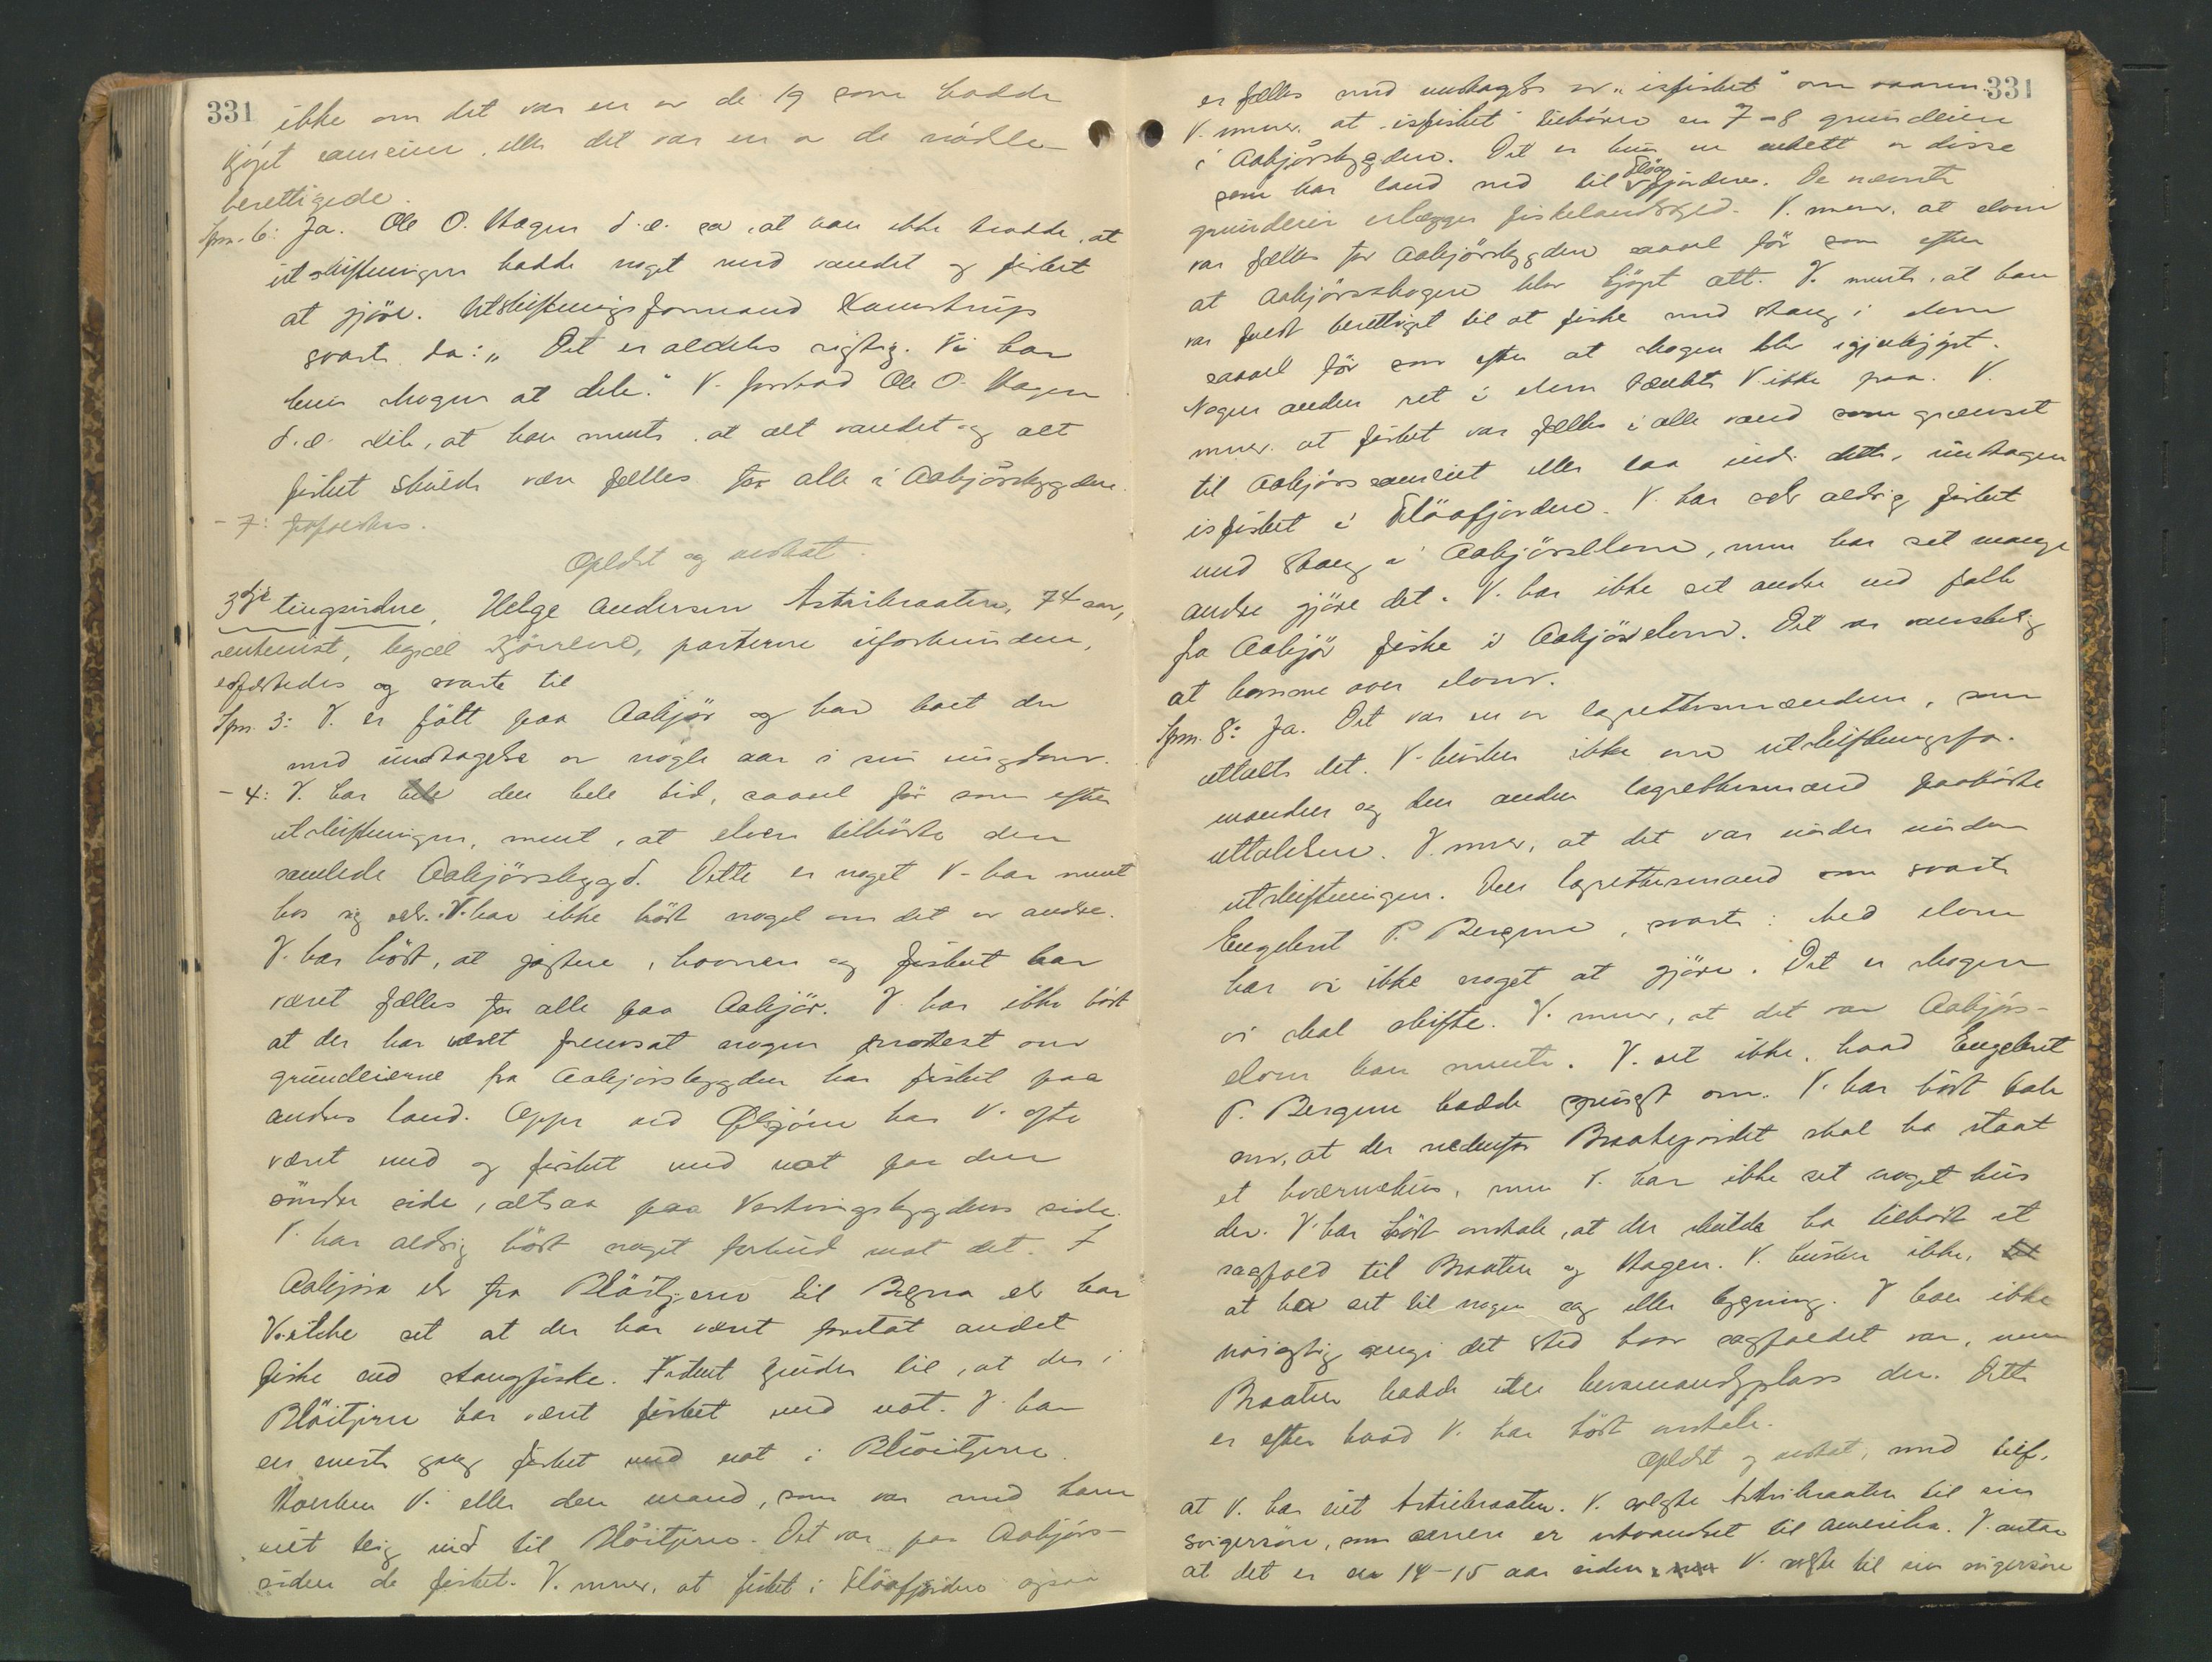 331
ikke om det var en av de 19 som hadde
kjöpt sameiet, eller det var en av de
berettigede.
Spm. 6: Ja. Ole O. Hagen d.æ. sa, at han ikke trodde, at
utskiftningen hadde noget med vandet og fisket
at gjöre. Utskiftningsformand Kamstrup
svarte da: "Det er aldeles rigtig. Vi har
kun skogen at dele." V. forstod Ole O. Hagen
d.æ. slik, at han mente, at alt vandet og alt
fisket skulde være fælles for alle i Aabjörsbygden.
- 7: frafaldtes.
Oplæst og vedtat.
3dje tingsvidne, Helge Andersen Astribraaten, 74 aar,
rentenist, bopæl, parterne uforbunden,
edfæstedes og svarte til
Spm. 3: V. er födt paa Aabjör og har boet der
med undtagelse av nogle aar i sin ungdom.
- 4: V. har den hele tid, saavel för som efter
utskiftningen, ment, at elven tilhörte den
samlede Aabjörsbygd. Dette er noget V. har ment
hos sig selv. V. har ikke hört noget om det av andre.
V. har hört, at jagten, havnen og fisket har
været fælles for alle paa Aabjör. V. har ikke hört
at der har været fremsat nogen protest om
grundeierne fra Aabjörsbygden har fisket paa
andres land. Oppe ved Ölsjöen har V. ofte
været med og fisket med not paa den
söndre side, altsaa paa Vestringsbygdens side.
V. har aldrig hört noget forbud mot det. I
Aabjöra elv fra Blöitjern til Begna elv har
V. ikke set at der har været foretat andet
fiske end stangfiske. Vidnet föier til, at der i
Blöitjern har været fisket med not. V. har
en eneste gang fisket med not i Blöitjern.
Hverken V. eller den mand, som var med ham
eiet teig ned til Blöitjern. Det var paa Aabjörs-
siden de fisket. V. mener, at fisket i Flöafjorden ogsaa
331
er fælles med undtagelse av "isfisket" om vaaren.
V. mener, at isfisket tilhörer en 7-8 grundeiere
i Aabjörsbygden. Det er kun en enkelt av disse
som har land ned til Flöafjorden. De nævnte
grundeiere erlægger fiskelandskyld. V. mener, at elven
var fælles for Aabjörsbygden saavel för som efter
at Aabjörsskogen blev kjöpt att. V. mente, at han
var fuldt berettiget til at fiske med stang i elven
saavel för som efter at skogen blev igjenkjöpt.
Nogen anden ret i elven tænkte V. ikke paa. V.
mener at fisket var fælles i alle vand som grænset
til Aabjörssameiet eller laa inde i dette, undtagen
isfisket i Flöafjorden. V. har selv aldrig fisket
med stang i Aabjörselven, men har set mange
andre gjöre det. V. har ikke set andre end folk
fra Aabjör fiske i Aabjörselven. Det var vanskelig
at komme over elven.
Spm. 8: Ja. Det var en av lagrettesmændene, som
uttalte det. V. husker ikke om utskiftningsfor-
manden og den anden lagrettesmand paahörte
uttalelsen. V. mener, at det var under
utskiftningen. Den lagrettesmand som svarte
Engebret P. Bergene, svarte: Med elven
har vi ikke noget at gjöre. Det er skogen
vi skal skifte. V. mener, at det var Aabjörs-
elven han mente. V. vet ikke, hvad Engebret
P. Bergene hadde spurgt om. V. har hört tale
om, at der nedenfor Braatejordet skal ha staat
et kværnehus, men V. har ikke set noget hus
der. V. har hört omtale, at der skulde ha tilhört et
sagfald til Braaten og Hagen. V. husker ikke,
at ha set til nogen sag eller bygning. V. kan ikke
nöiagtig angi det sted hvor sagfaldet var, men
Braaten hadde en husmandsplass der. Dette
er efter hvad V. har hört omtale.
Oplæst og vedtat, med tilf.
at V. har eiet Astribraaten. V. solgte Astribraaten til sin
svigersön, som senere er utvandret til Amerika. V. antar
at det er en 14-15 aar siden V. solgte til sin svigersön